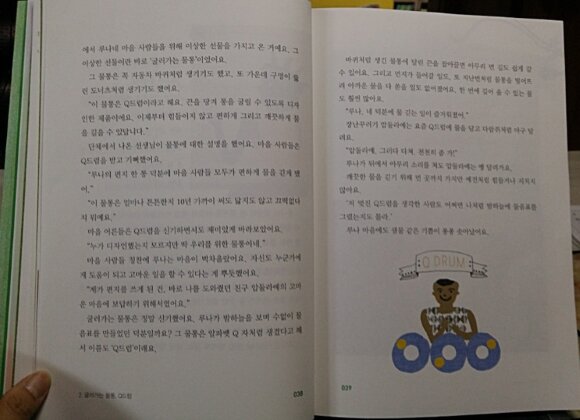 에서 루나네 마을 사람들을 위해 이상한 선물을 가지고 온 거예요. 그
이상한 선물이란 바로 '굴러가는 물통'이었어요.
그 물통은 꼭 자동차 바퀴처럼 생기기도 했고, 또 가운데 구멍이 뚫
린 도너츠처럼 생기기도 했어요.
"이 물통은 Q드럼이라고 해요. 끈을 당겨 통을 굴릴 수 있도록 디자
인한 제품이에요. 이제부터 힘들이지 않고 편하게 그리고 깨끗하게 물
을 길을 수 있답니다."
단체에서 나온 선생님이 물통에 대한 설명을 했어요. 마을 사람들은
Q드럼을 받고 기뻐했어요.
"루나의 편지 한 통 덕분에 마을 사람들 모두가 편하게 물을 긷게 됐
어."
"이 물통은 얼마나 튼튼한지 10년 가까이 써도 닳지도 않고 끄떡없다
지 뭐예요."
마을 어른들은 Q드럼을 신기하면서도 재미있게 바라보았어요.
"누가 디자인했는지 모르지만 딱 우리를 위한 물통이네."
마을 사람들 칭찬에 루나는 마음이 벅차올랐어요. 자신도 누군가에
게 도움이 되고 고마운 일을 할 수 있다는 게 뿌듯했어요.
"제가 편지를 쓰게 된 건, 바로 나를 도와줬던 친구 암둘라에의 고마
운 마음에 보답하기 위해서였어요."
굴러가는 물통은 정말 신기했어요. 루나가 밤하늘을 보며 수없이 물
음표를 만들었던 덕분일까요? 그 물통은 알파벳 Q 자처럼 생겼다고 해
서 이름도 'Q드럼'이래요.
2. 굴러가는 물통, Q드럼
038
바퀴처럼 생긴 물통에 달린 끈을 잡아끌면 아무리 먼 길도 쉽게 갈
수 있어요. 그리고 먼지가 들어갈 일도, 또 지난번처럼 물통을 떨어뜨
려 아까운 물을 다 쏟을 일도 없어졌어요. 한 번에 길어 올 수 있는 물
도 훨씬 많아요.
"루나, 네 덕분에 물 긷는 일이 즐거워졌어."
장난꾸러기 암둘라에는 요즘 Q드럼에 물을 담고 다람쥐처럼 마구 달
려요.
"암둘라에, 그러다 다쳐. 천천히 좀 가!"
루나가 뒤에서 아무리 소리를 쳐도 암둘라에는 쌩 달려가요.
깨끗한 물을 긷기 위해 먼 곳까지 가지만 예전처럼 힘들거나 지치지
않아요.
'저 멋진 Q드럼을 생각한 사람도 어쩌면 나처럼 밤하늘에 물음표를
그렸는지도 몰라.'
루나 마음에도 샘물 같은 기쁨이 퐁퐁 솟아났어요.
Q DRUM
039